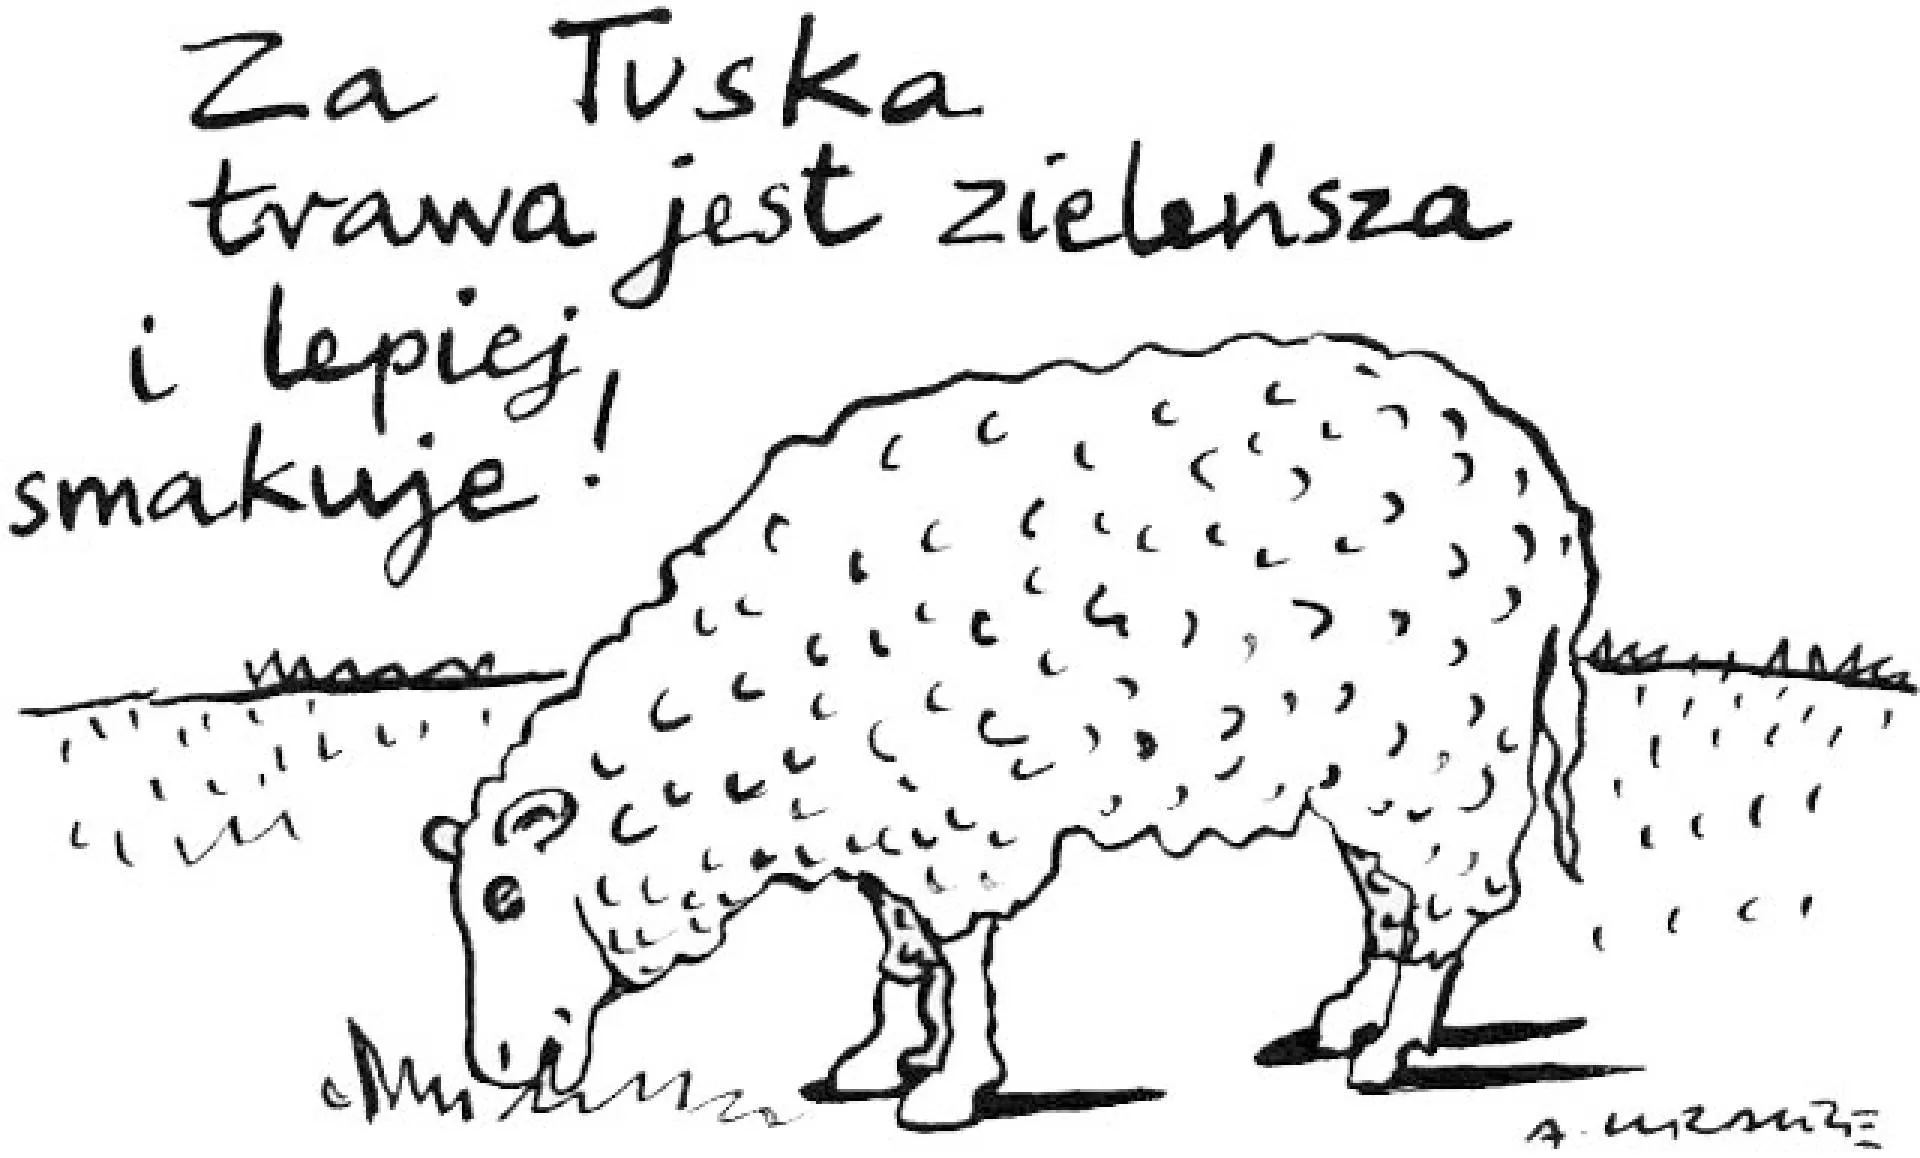 Za Tuska
trawa jest zieleńsza
i lepiej
smakuje!
A. KRAUZE